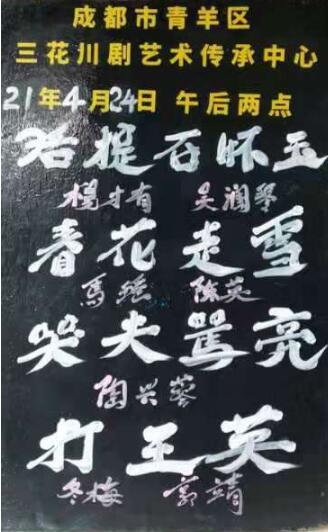 成都市青羊区
三花川剧艺术传承中心
21年4月24日 午后两点
活捉石怀玉
杨才有 吴润琴
春花走雪
马瑶 陈英
哭夫骂亮
陶兴蓉
打王英
冬梅 郭靖